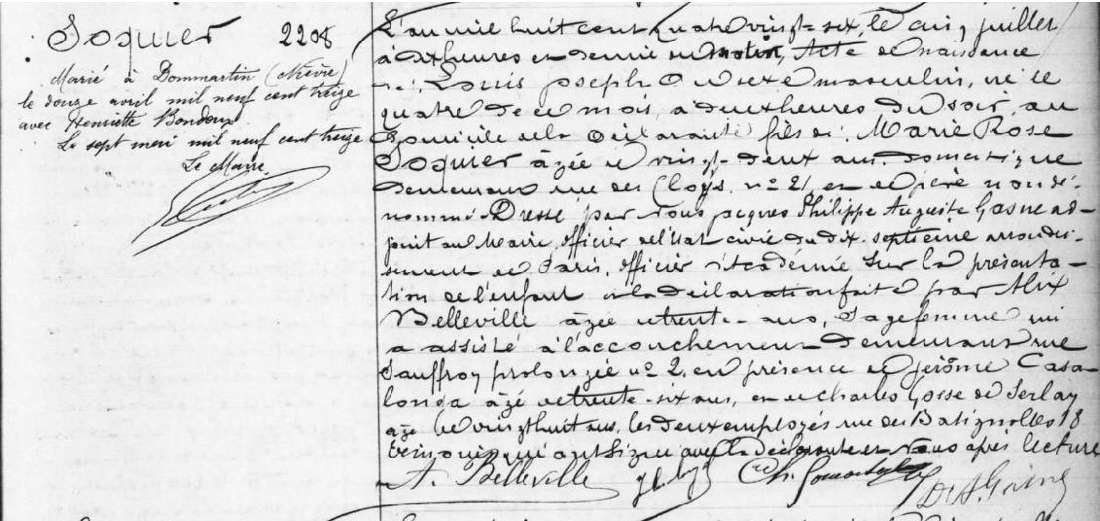 Soquier 2208
Marié à Dommartin (Nièvre)
le douze avril mil neuf cent treize
avec Henriette Bondoux
Le sept mai mil neuf cent treize
Le Maire
L'an mil huit cent quatre vingt-six, le cinq juillet
à dix heures et demie du matin, Acte de naissance
de Louis Joseph de sexe masculin, né le
quatre de ce mois, à deux heures du soir, au
domicile de la déclarante fils de Marie Rose
Soquier âgée de vingt-deux ans, domestique
demeurant rue des Cloÿs n° 21, et de père non dé-
nommé. Dressé par nous Jacques Philippe Auguste Gosne ad-
joint au Maire, officier de l'état civil du dix-septième arrondis-
sement de Paris, officier d'Académie sur la présenta-
tion de l'enfant et la déclaration faite par Alix
Belleville âgée de trente-ans, Sagefemme qui
a assisté à l'accouchement demeurant rue
Sauffroy prolongée n° 2, en présence de Jérôme Casa-
longa âgé de trente-six ans, et de Charles Gosse de Serlay
âgé de vingt huit ans, les deux employés rue des Batignolles 18
témoins qui ont signé avec la déclarante et nous après lecture
A. Belleville